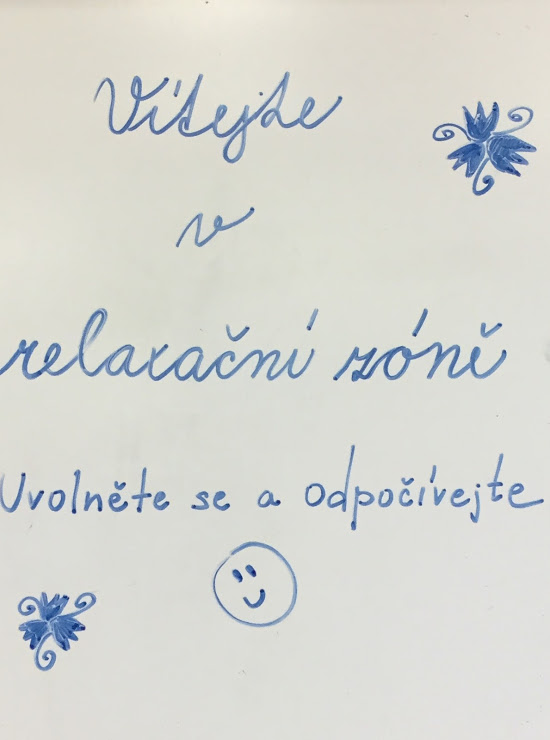 Vítejte
v
relaxační zóně
Uvolněte se a odpočívejte